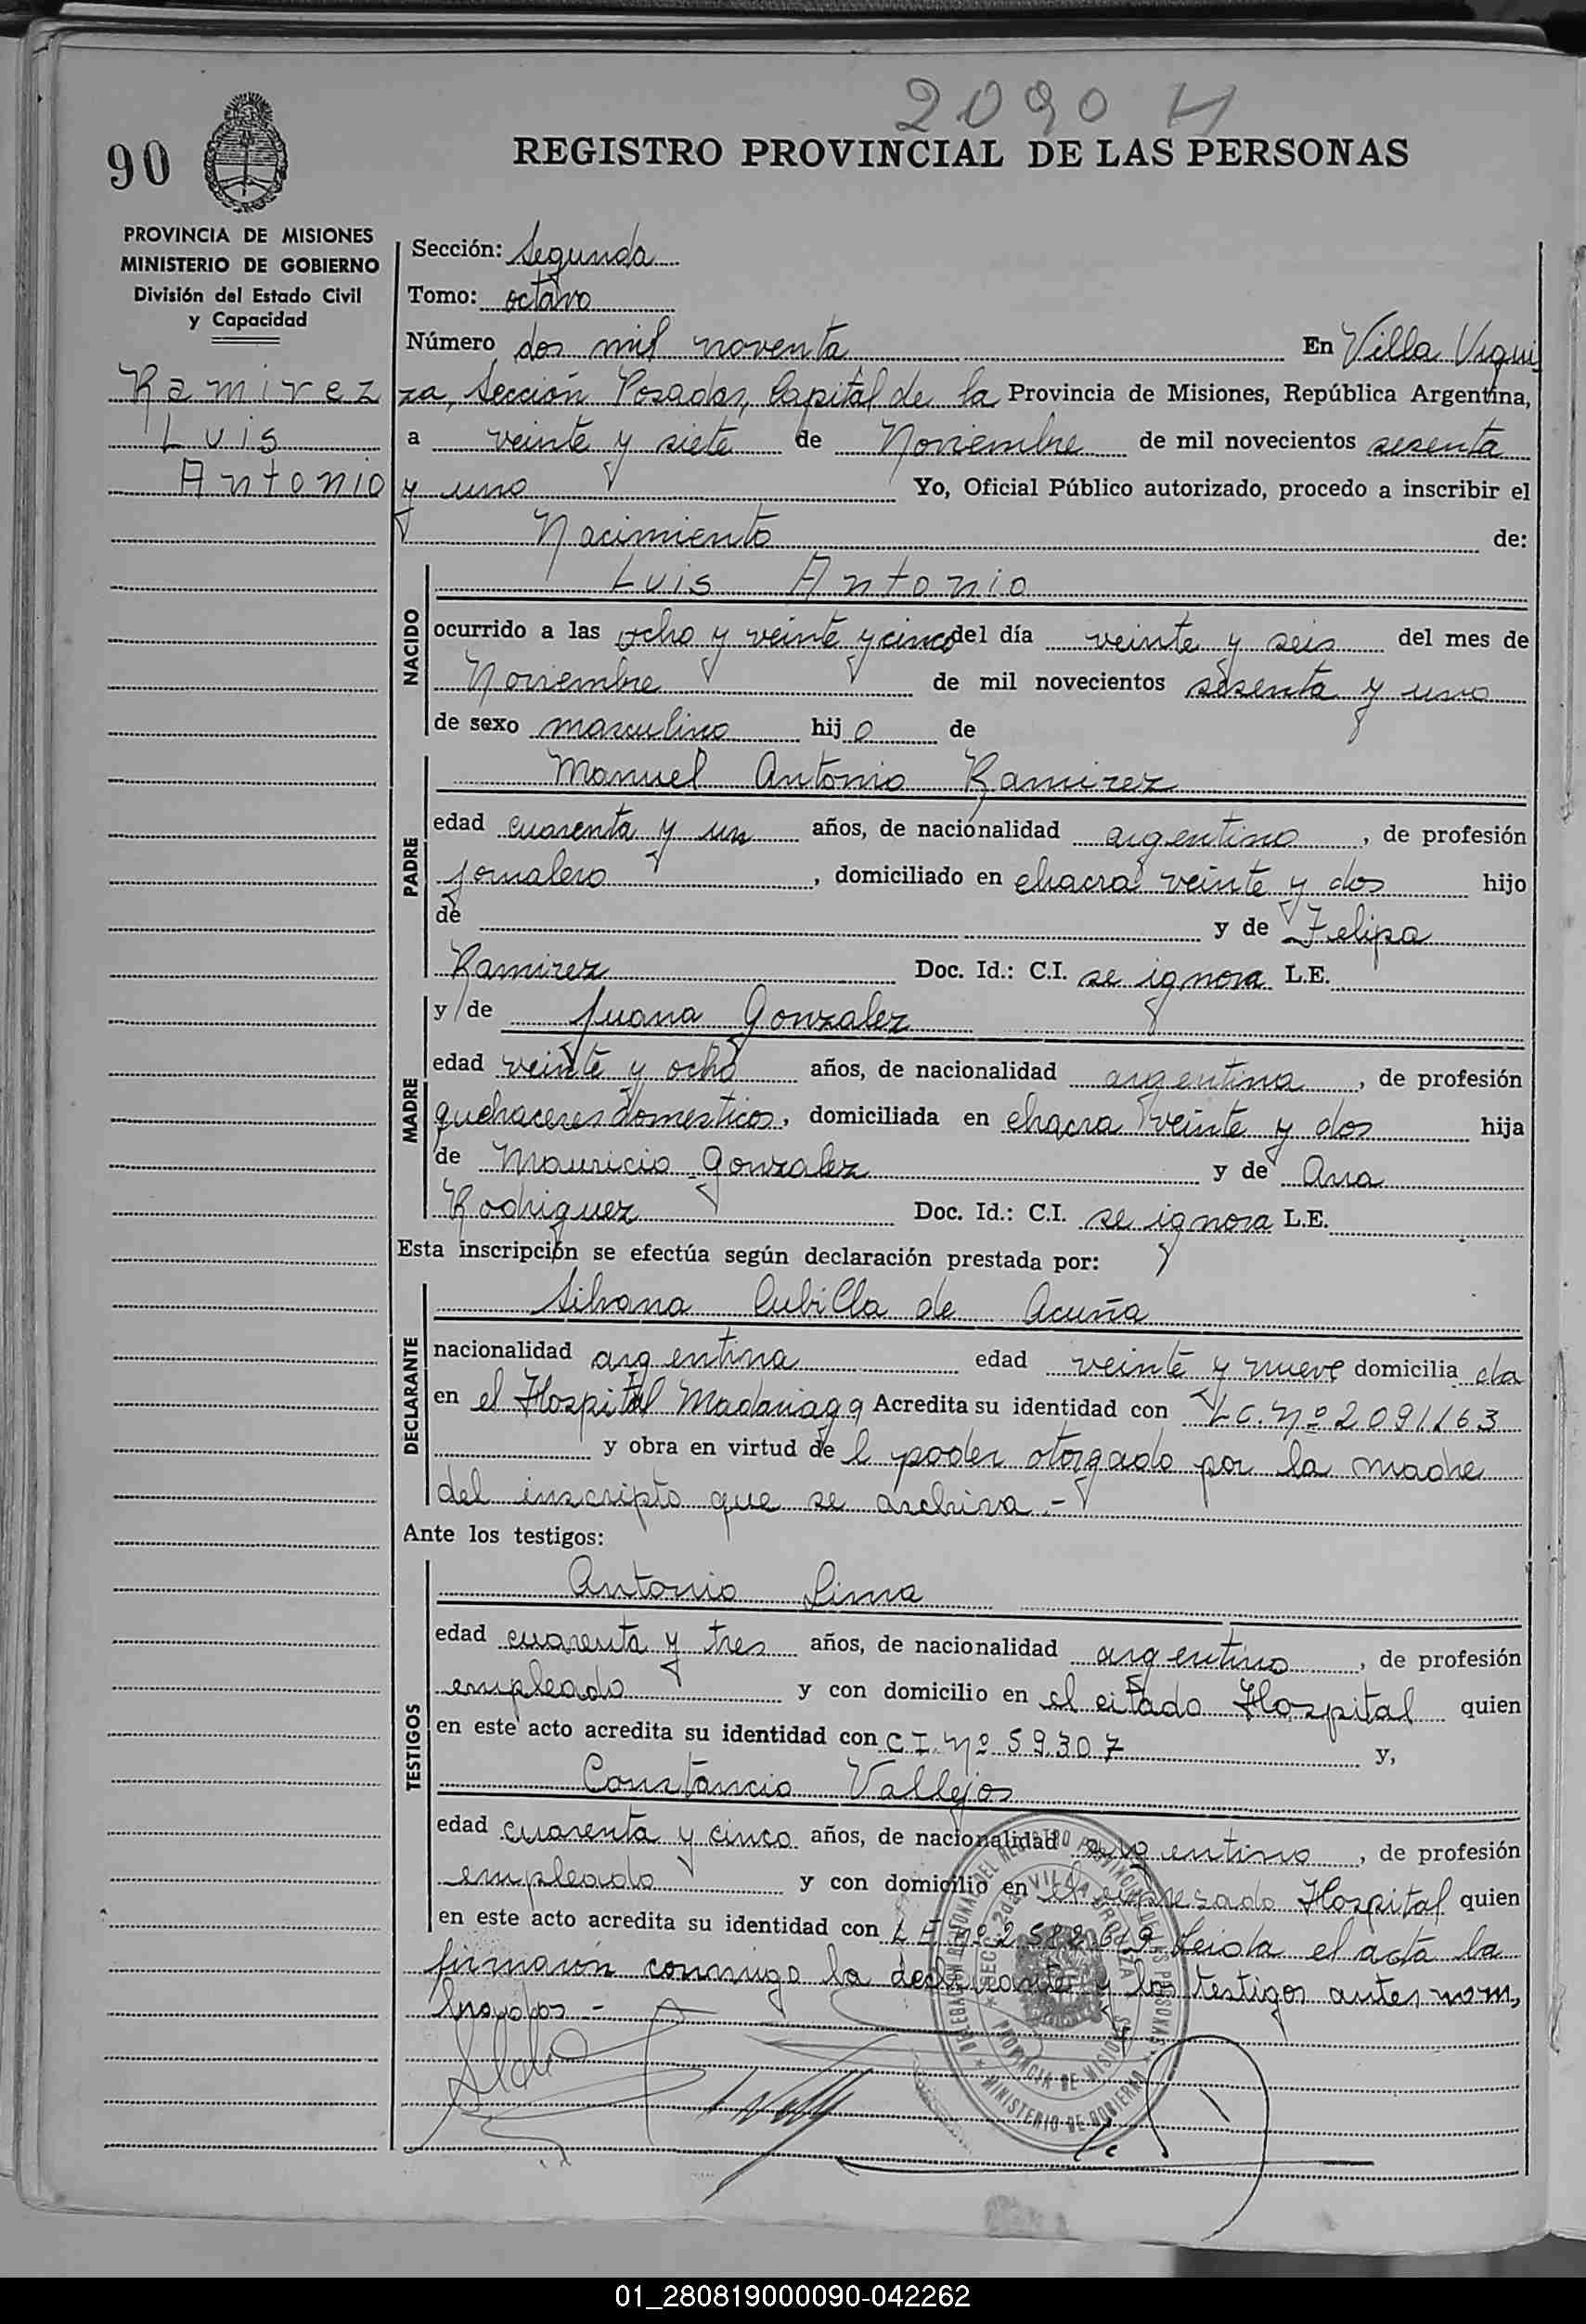 2090 H
90
REGISTRO PROVINCIAL DE LAS PERSONAS
PROVINCIA DE MISIONES
MINISTERIO DE GOBIERNO
División del Estado Civil
y Capacidad
Ramirez
Luis
Antonio
Sección: Segunda
Tomo: octavo
Número dos mil noventa En Villa Urqui
za, Sección Posadas, Capital de la Provincia de Misiones, República Argentina,
a veinte y siete de Noviembre de mil novecientos sesenta
y uno Yo, Oficial Público autorizado, procedo a inscribir el
Nacimiento de:
NACIDO
Luis Antonio
ocurrido a las ocho y veinte y cinco del día veinte y seis del mes de
Noviembre de mil novecientos sesenta y uno
de sexo masculino hijo de
PADRE
Manuel Antonio Ramirez
edad cuarenta y un años, de nacionalidad argentino, de profesión
jornalero, domiciliado en chacra veinte y dos hijo
de y de Felipa
Ramirez Doc. Id.: C.I. se ignora L.E.
MADRE
y de Juana Gonzalez
edad veinte y ocho años, de nacionalidad argentina, de profesión
quehaceres domesticos, domiciliada en chacra veinte y dos hija
de Mauricio Gonzalez y de Ana
Rodriguez Doc. Id.: C.I. se ignora L.E.
Esta inscripción se efectúa según declaración prestada por:
DECLARANTE
Silvana Cubilla de Acuña
nacionalidad argentina edad veinte y nueve domiciliada
en el Hospital Madariaga Acredita su identidad con L C. Nº 2091163
y obra en virtud del poder otorgado por la madre
del inscripto que se archiva.-
Ante los testigos:
TESTIGOS
Antonio Lima
edad cuarenta y tres años, de nacionalidad argentino, de profesión
empleado y con domicilio en el citado Hospital quien
en este acto acredita su identidad con C I. Nº 59.307 y,
Constancio Vallejos
edad cuarenta y cinco años, de nacionalidad argentino, de profesión
empleado y con domicilio en el expresado Hospital quien
en este acto acredita su identidad con L E Nº 2.582.619 Leida el acta la
firmaron conmigo la declarante y los testigos antes nom,
brados -
DELEGACION REGIONAL DEL REGISTRO PROVINCIAL DE LAS PERSONAS
SECC. 2da. VILLA URQUIZA
PROVINCIA DE MISIONES
MINISTERIO DE GOBIERNO
01_280819000090-042262